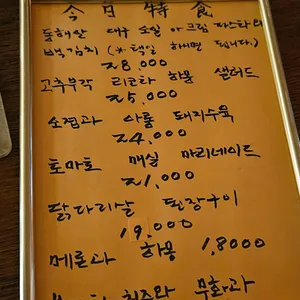 今日特食
동해산 대구 소일 아크림 파스타더
백김치 (*택일 하시면 됩니다.)
28.000
고추부각 리코타 하몽 샐러드
25.000
소접과 사롱 돼지수육
24.000
토마토 매실 마리네이드
21.000
닭다리살 된장구이
19.000
메론과 하몽 1,8000
치즈와 무화과